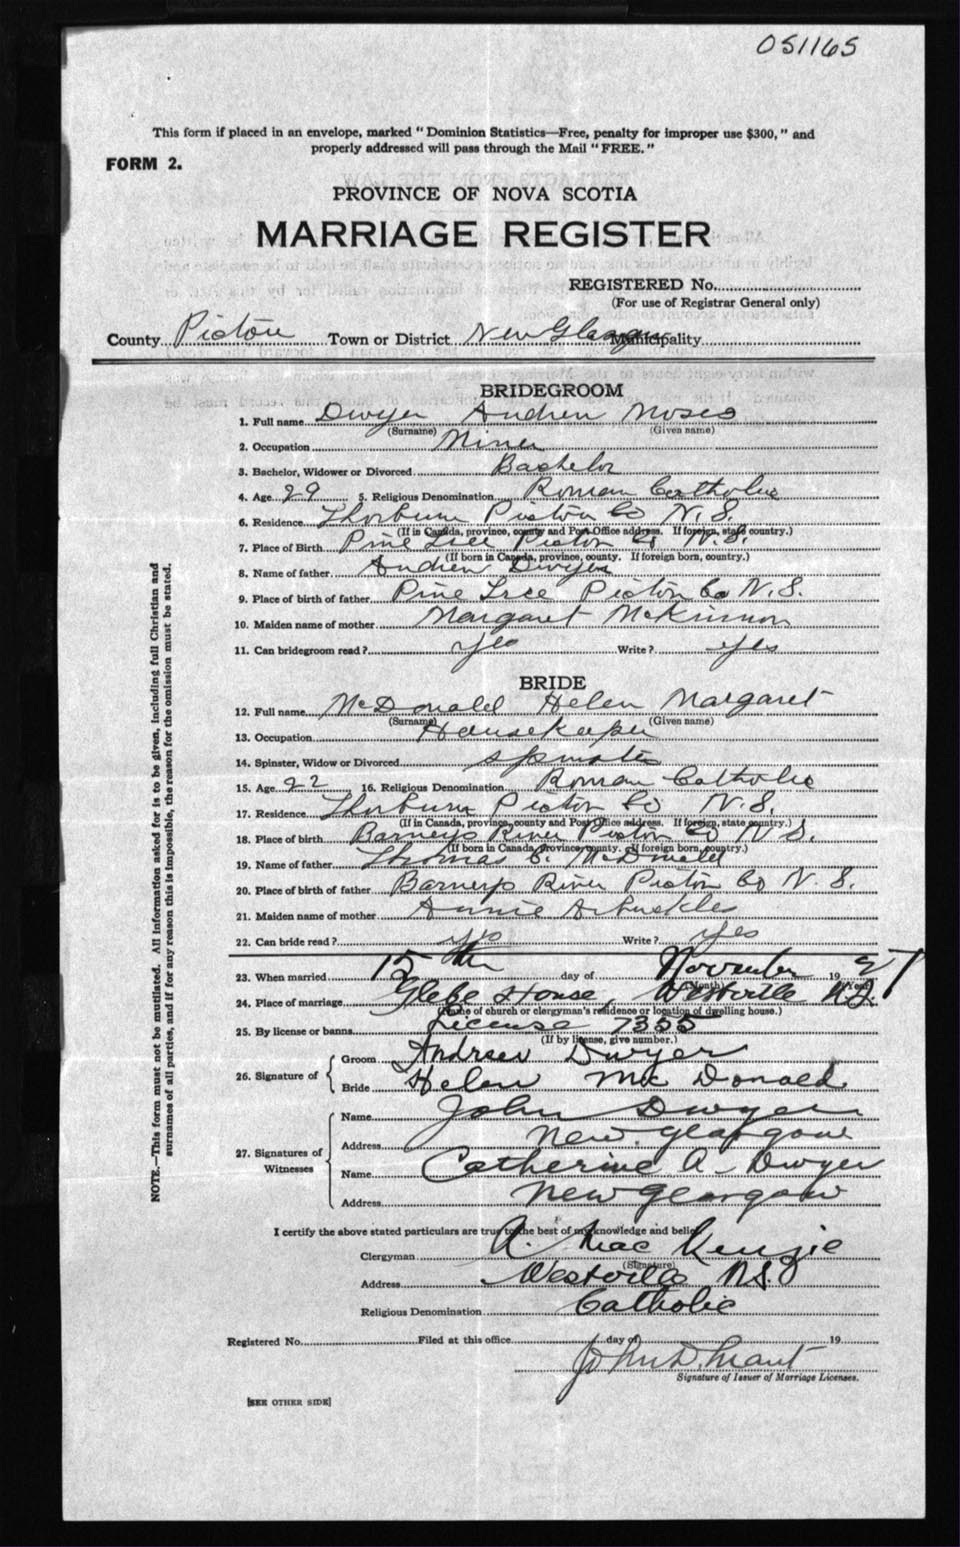 051165
This form if placed in an envelope, marked "Dominion Statistics—Free, penalty for improper use $300," and
properly addressed will pass through the Mail "FREE."
FORM 2.
PROVINCE OF NOVA SCOTIA
MARRIAGE REGISTER
REGISTERED No.
(For use of Registrar General only)
County Pictou Town or District New Glasgow Municipality
BRIDEGROOM
1. Full name Dwyer Andrew Moses
(Surname) (Given name)
2. Occupation Miner
3. Bachelor, Widower or Divorced Bachelor
4. Age 29 5. Religious Denomination Roman Catholic
6. Residence Thorburn Pictou Co N.S.
(If in Canada, province, county and Post Office address. If foreign, state country.)
7. Place of Birth Pine Tree Pictou Co N.S.
(If born in Canada, province, county. If foreign born, country.)
8. Name of father Andrew Dwyer
9. Place of birth of father Pine Tree Pictou Co N.S.
10. Maiden name of mother Margaret McKinnon
11. Can bridegroom read? yes Write? yes
BRIDE
12. Full name McDonald Helen Margaret
(Surname) (Given name)
13. Occupation Housekeeper
14. Spinster, Widow or Divorced spinster
15. Age 22 16. Religious Denomination Roman Catholic
17. Residence Thorburn Pictou Co N.S.
(If in Canada, province, county and Post Office address. If foreign, state country.)
18. Place of birth Barneys River Pictou Co N.S.
(If born in Canada, province, county. If foreign born, country.)
19. Name of father Thomas C. McDonald
20. Place of birth of father Barneys River Pictou Co N.S.
21. Maiden name of mother Annie Arbuckles
22. Can bride read? yes Write? yes
23. When married 15th day of November 1927
(Month) (Year)
24. Place of marriage Glebe House, Westville N.S.
(Name of church or clergyman's residence or location of dwelling house.)
25. By license or banns License 7355
(If by license, give number.)
26. Signature of
Groom Andrew Dwyer
Bride Helen McDonald
27. Signatures of Witnesses
Name John Dwyer
Address New Glasgow
Name Catherine A. Dwyer
Address New Glasgow
I certify the above stated particulars are true to the best of my knowledge and belief.
Clergyman A. MacKenzie
(Signature)
Address Westville N.S.
Religious Denomination Catholic
Registered No. Filed at this office day of 19
John D. Grant
Signature of Issuer of Marriage Licenses.
[SEE OTHER SIDE]
NOTE.—This form must not be mutilated. All information asked for is to be given, including full Christian and
surnames of all parties, and if for any reason this is impossible, the reason for the omission must be stated.